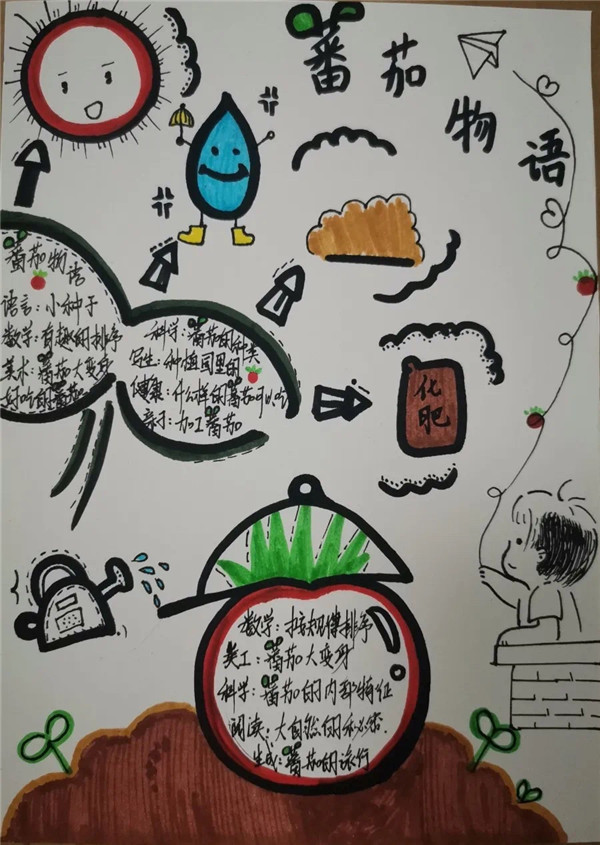 番茄
物
语
番茄物语
语言：小种子
数学：有趣的排序
美术：番茄大变身
好吃的番茄
科学：番茄的种类
写生：种植园里的
健康：什么样的番茄可以吃
亲子：加工番茄
化
肥
数学：按规律排序
美工：番茄大变身
科学：番茄的内部特征
阅读：大自然的秘密.
生成：番茄的旅行